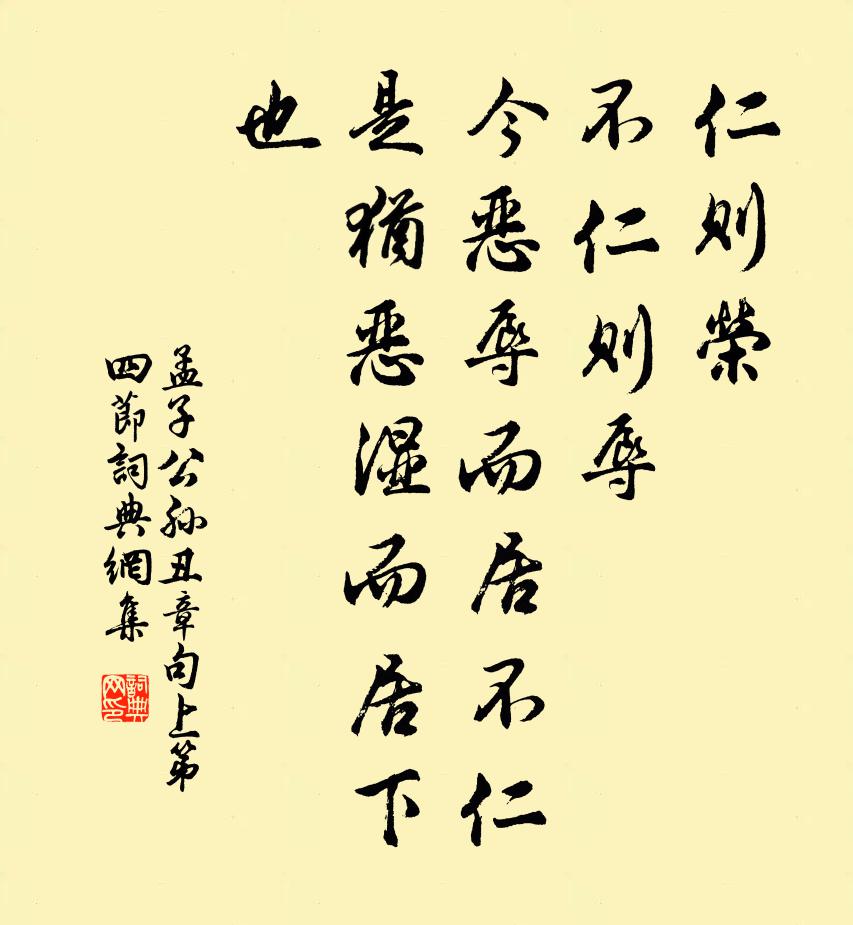 仁則榮
不仁則辱
今恶辱而居不仁
是猶恶湿而居下
也
孟子公孙丑章句上第
四節詞典網集
詞典
网印